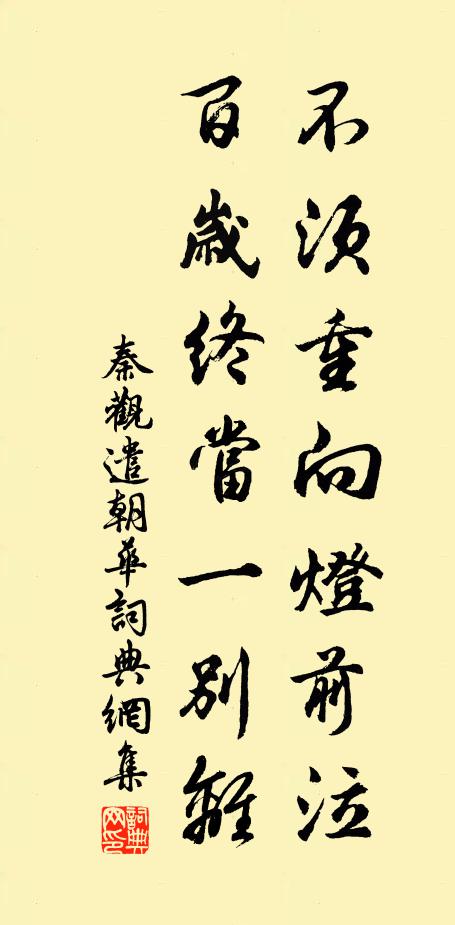 不須重向燈前泣
百歲終當一別離
秦觀遣朝華詞典網集
詞典網印